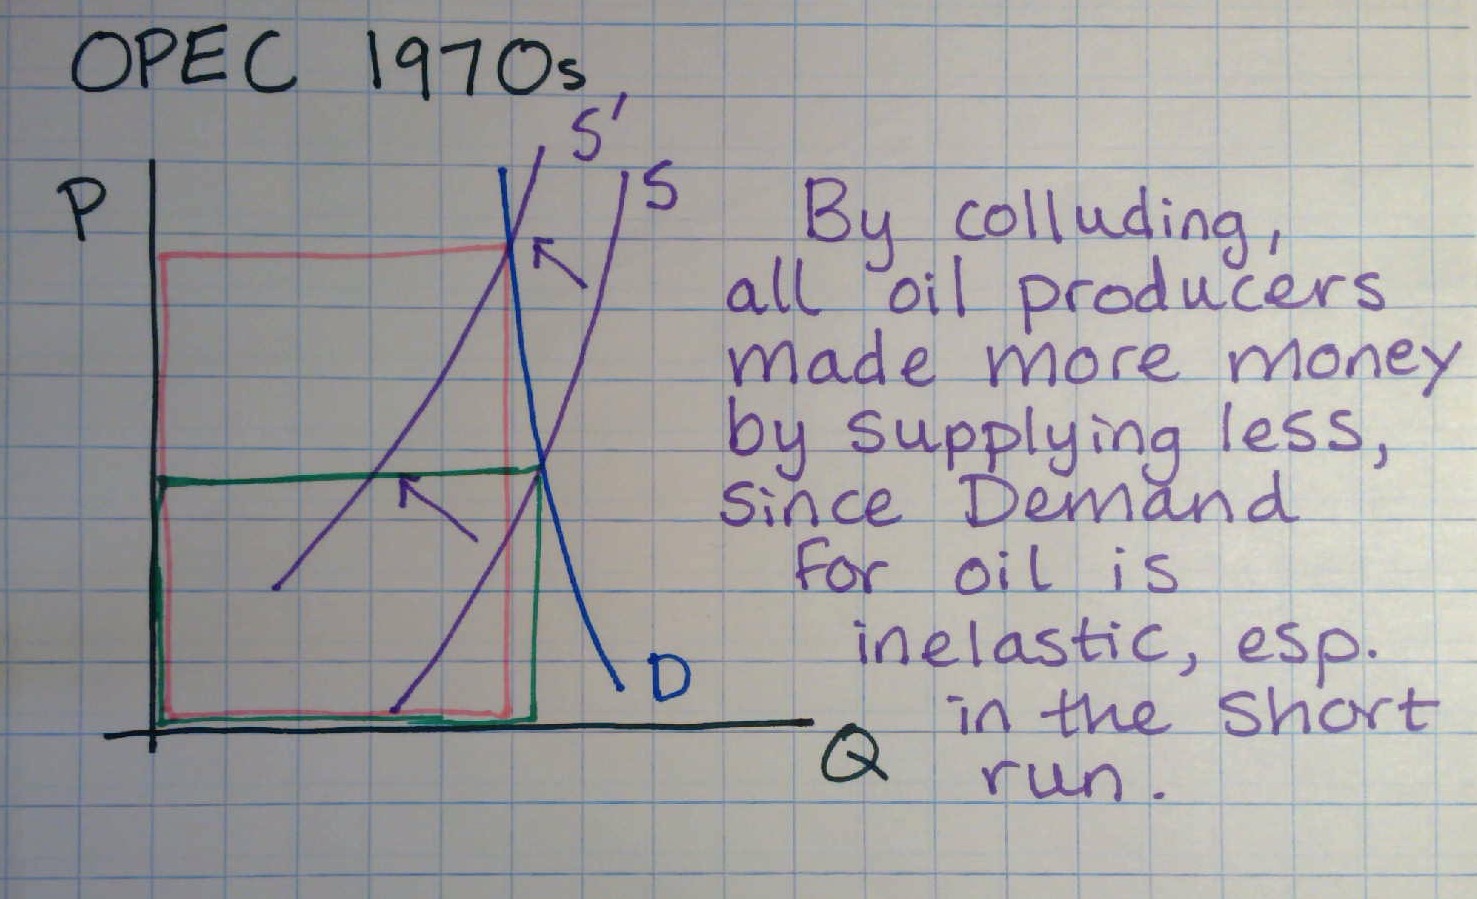 OPEC 1970s
S'
S
P
By colluding,
all oil producers
made more money
by supplying less,
since Demand
for oil is
inelastic, esp.
in the short
run.
D
Q